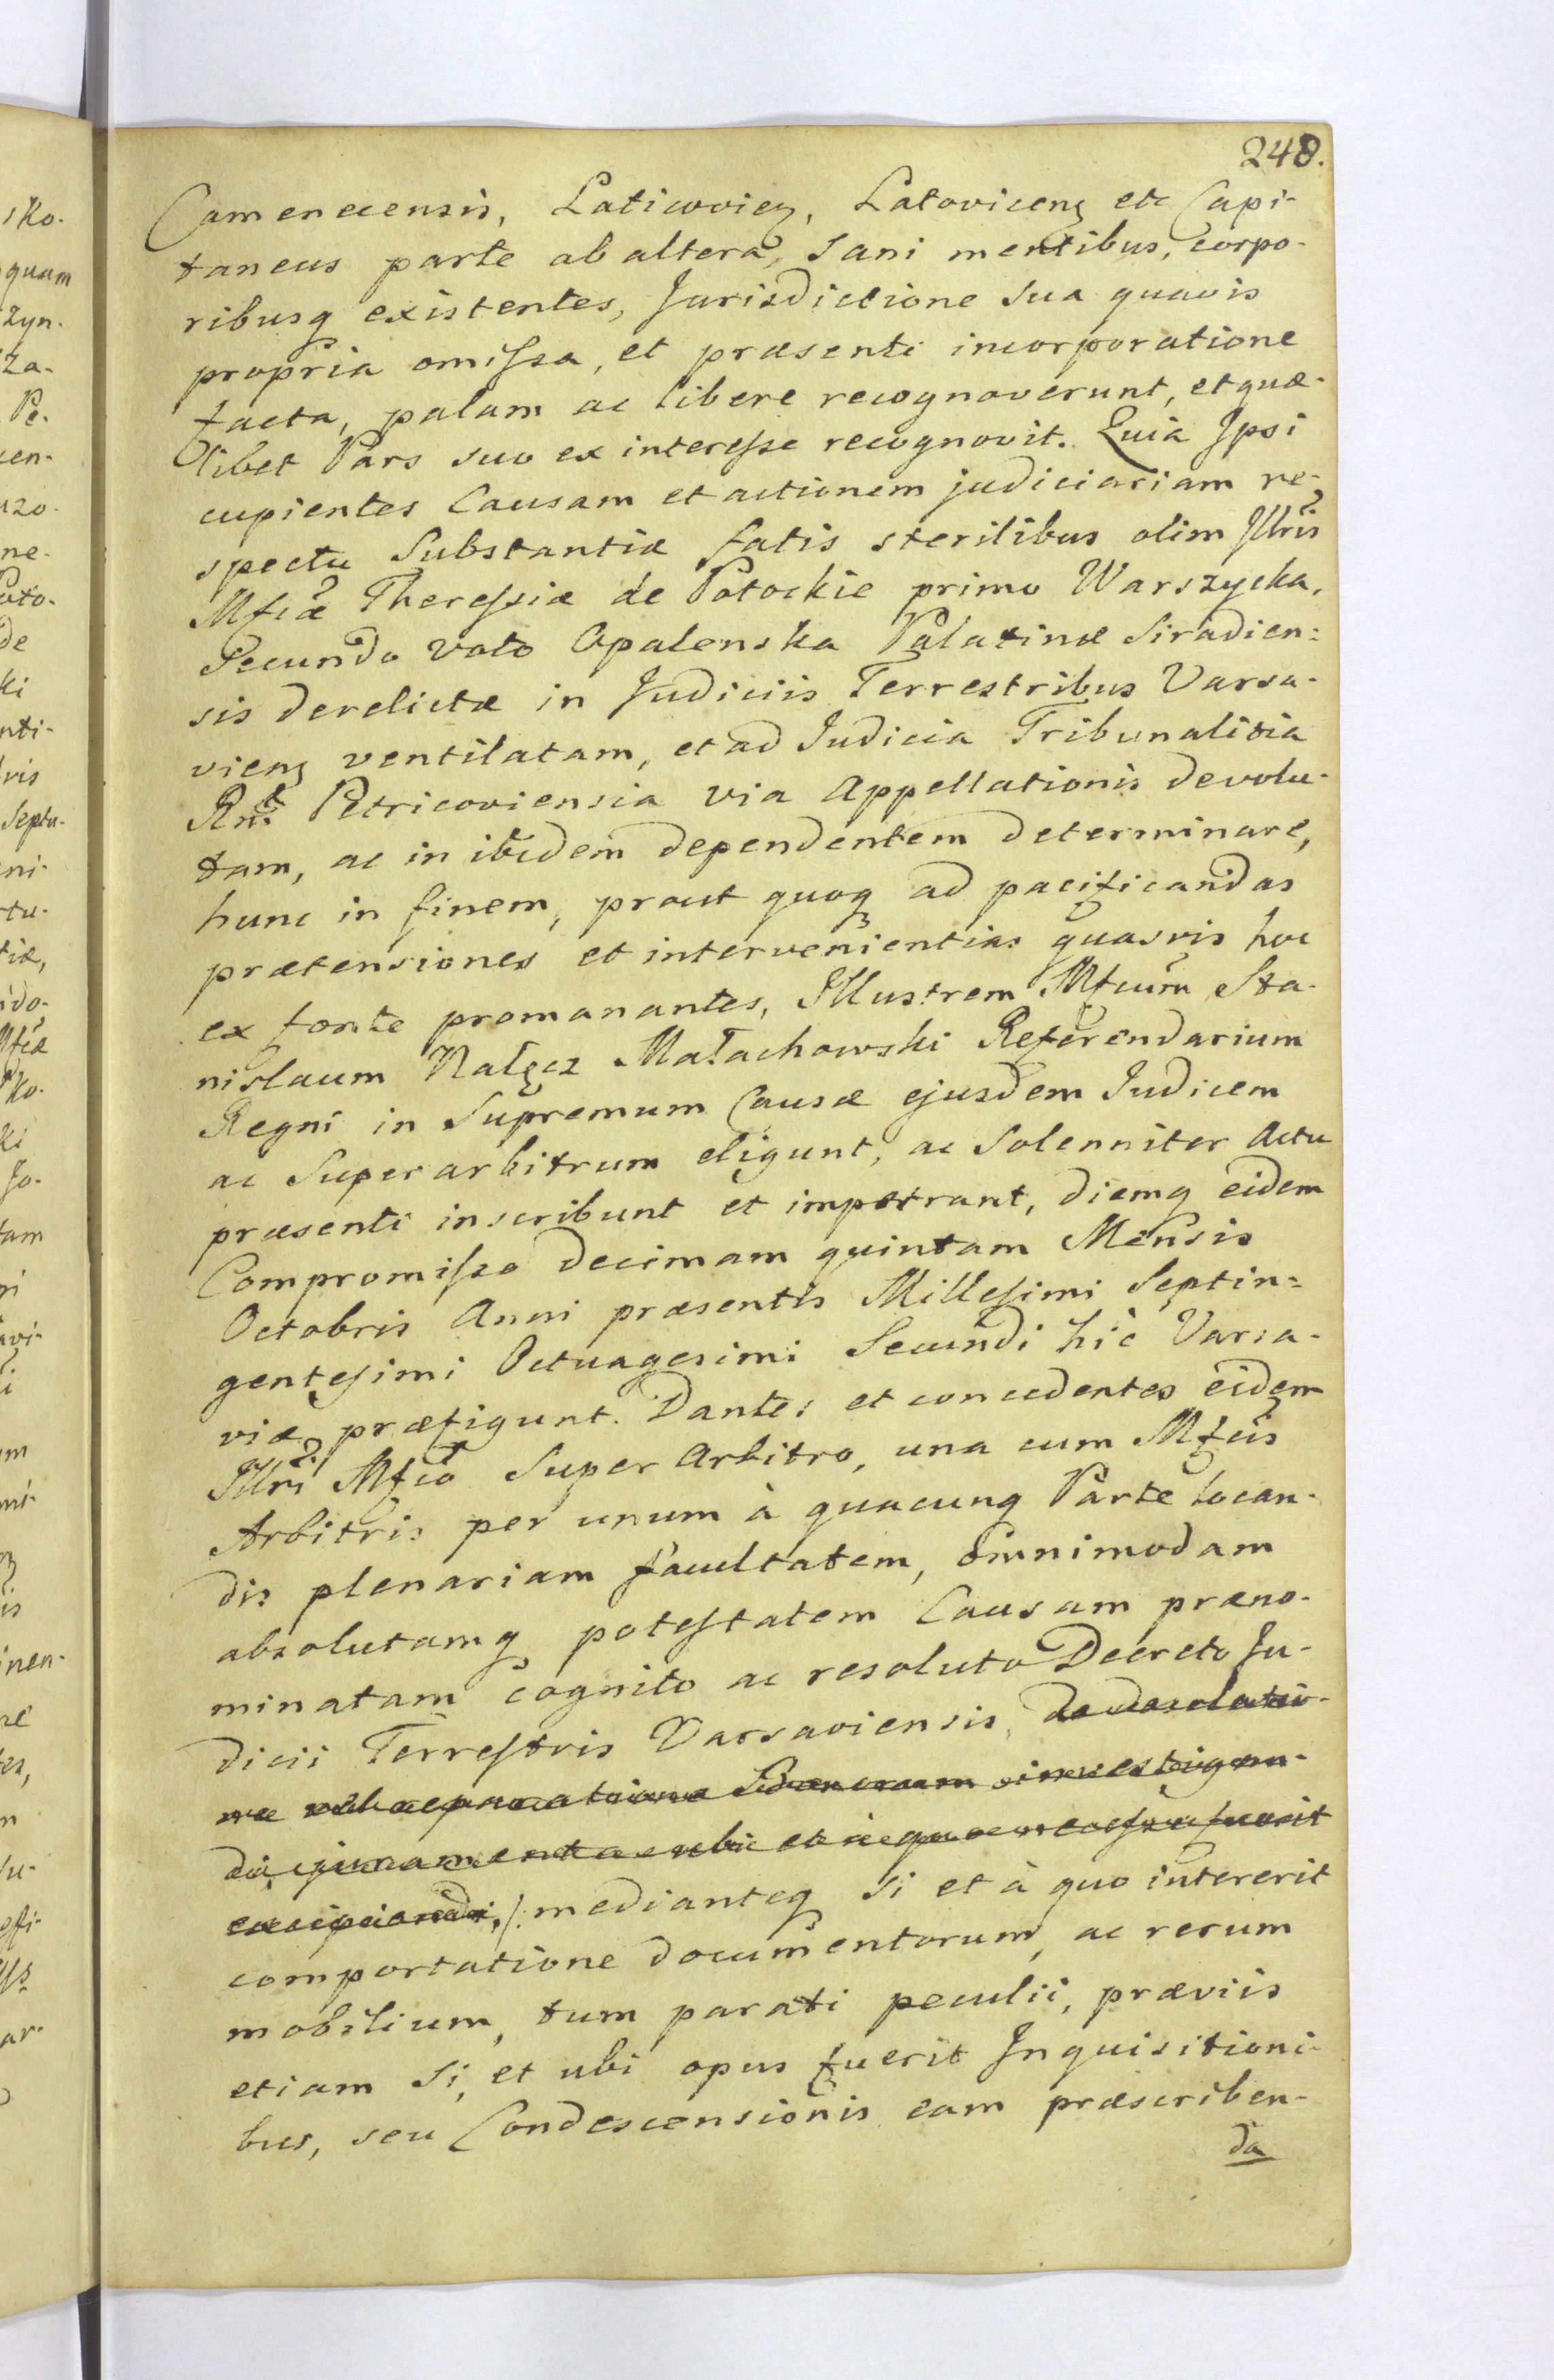 248.
Camenecensis, Laticoviens, Latovicens etc Capi-
taneus parte ab altera, Sani mentibus, corpo-
ribusq existentes, Jurisdictione Sua quavis
propria omissa, et præsenti incorporatione
facta, palam ac libere recognoverunt, et quæ-
libet Pars suo ex interesse recognovit. Quia Ipsi
cupientes Causam et actionem judiciariam re-
spectu Substantiæ fatis sterilibus olim Illris
Mfcæ Theressiæ de Potockie primo Warszycka,
Secundo voto Opalenska Palatinæ Siradien-
sis derelictæ in Judiciis Terrestribus Varsa-
viens ventilatam, et ad Judicia Tribunalitia
Rnt Petricoviensia via Appellationis devolu-
tam, ac in ibidem dependentem determinare,
hunc in finem, prout quoq ad pacificandas
prætensiones et intervenientias quasvis hoc
ex fonte promanantes, Illustrem Mfcum Sta-
nislaum Nałęcz Małachowski Referendarium
Regni in Supremum Causæ ejusdem Judicem
ac Superarbitrum eligunt, ac Solenniter Actu
præsenti inscribunt et impetrant, diemq eidem
Compromisso decimam quintam Mensis
Octobris Anni præsentis Millesimi Septin-
gentesimi Octuagesimi Secundi hic Varsa-
viæ præfigunt. Dantes et concedentes eidem
Illri Mfco Super Arbitro, una cum Mfcis
Arbitris per unum à quacunq Parte locan-
dis plenariam facultatem, omnimodam
absolutamq potestatem Causam præno-
minatam cognito ac resoluto Decreto Ju-
dicii Terrestris Varsaviensis, de desolatio-
ne investigan-
di, juramenta ubi et à quo necesse fuerit
excipiendi, /: medianteq si et à quo intererit
comportatione documentorum, ac rerum
mobilium, tum parati peculii, præviis
etiam si, et ubi opus fuerit Inquisitioni-
bus, seu Condescensionis eam præscriben-
da
sko-
quam
zyn-
za-
Pe-
ne-
de
ki
nti-
ris
Septu-
ni-
tu-
tiæ,
Mfcæ
ko-
ki
Jo-
tam